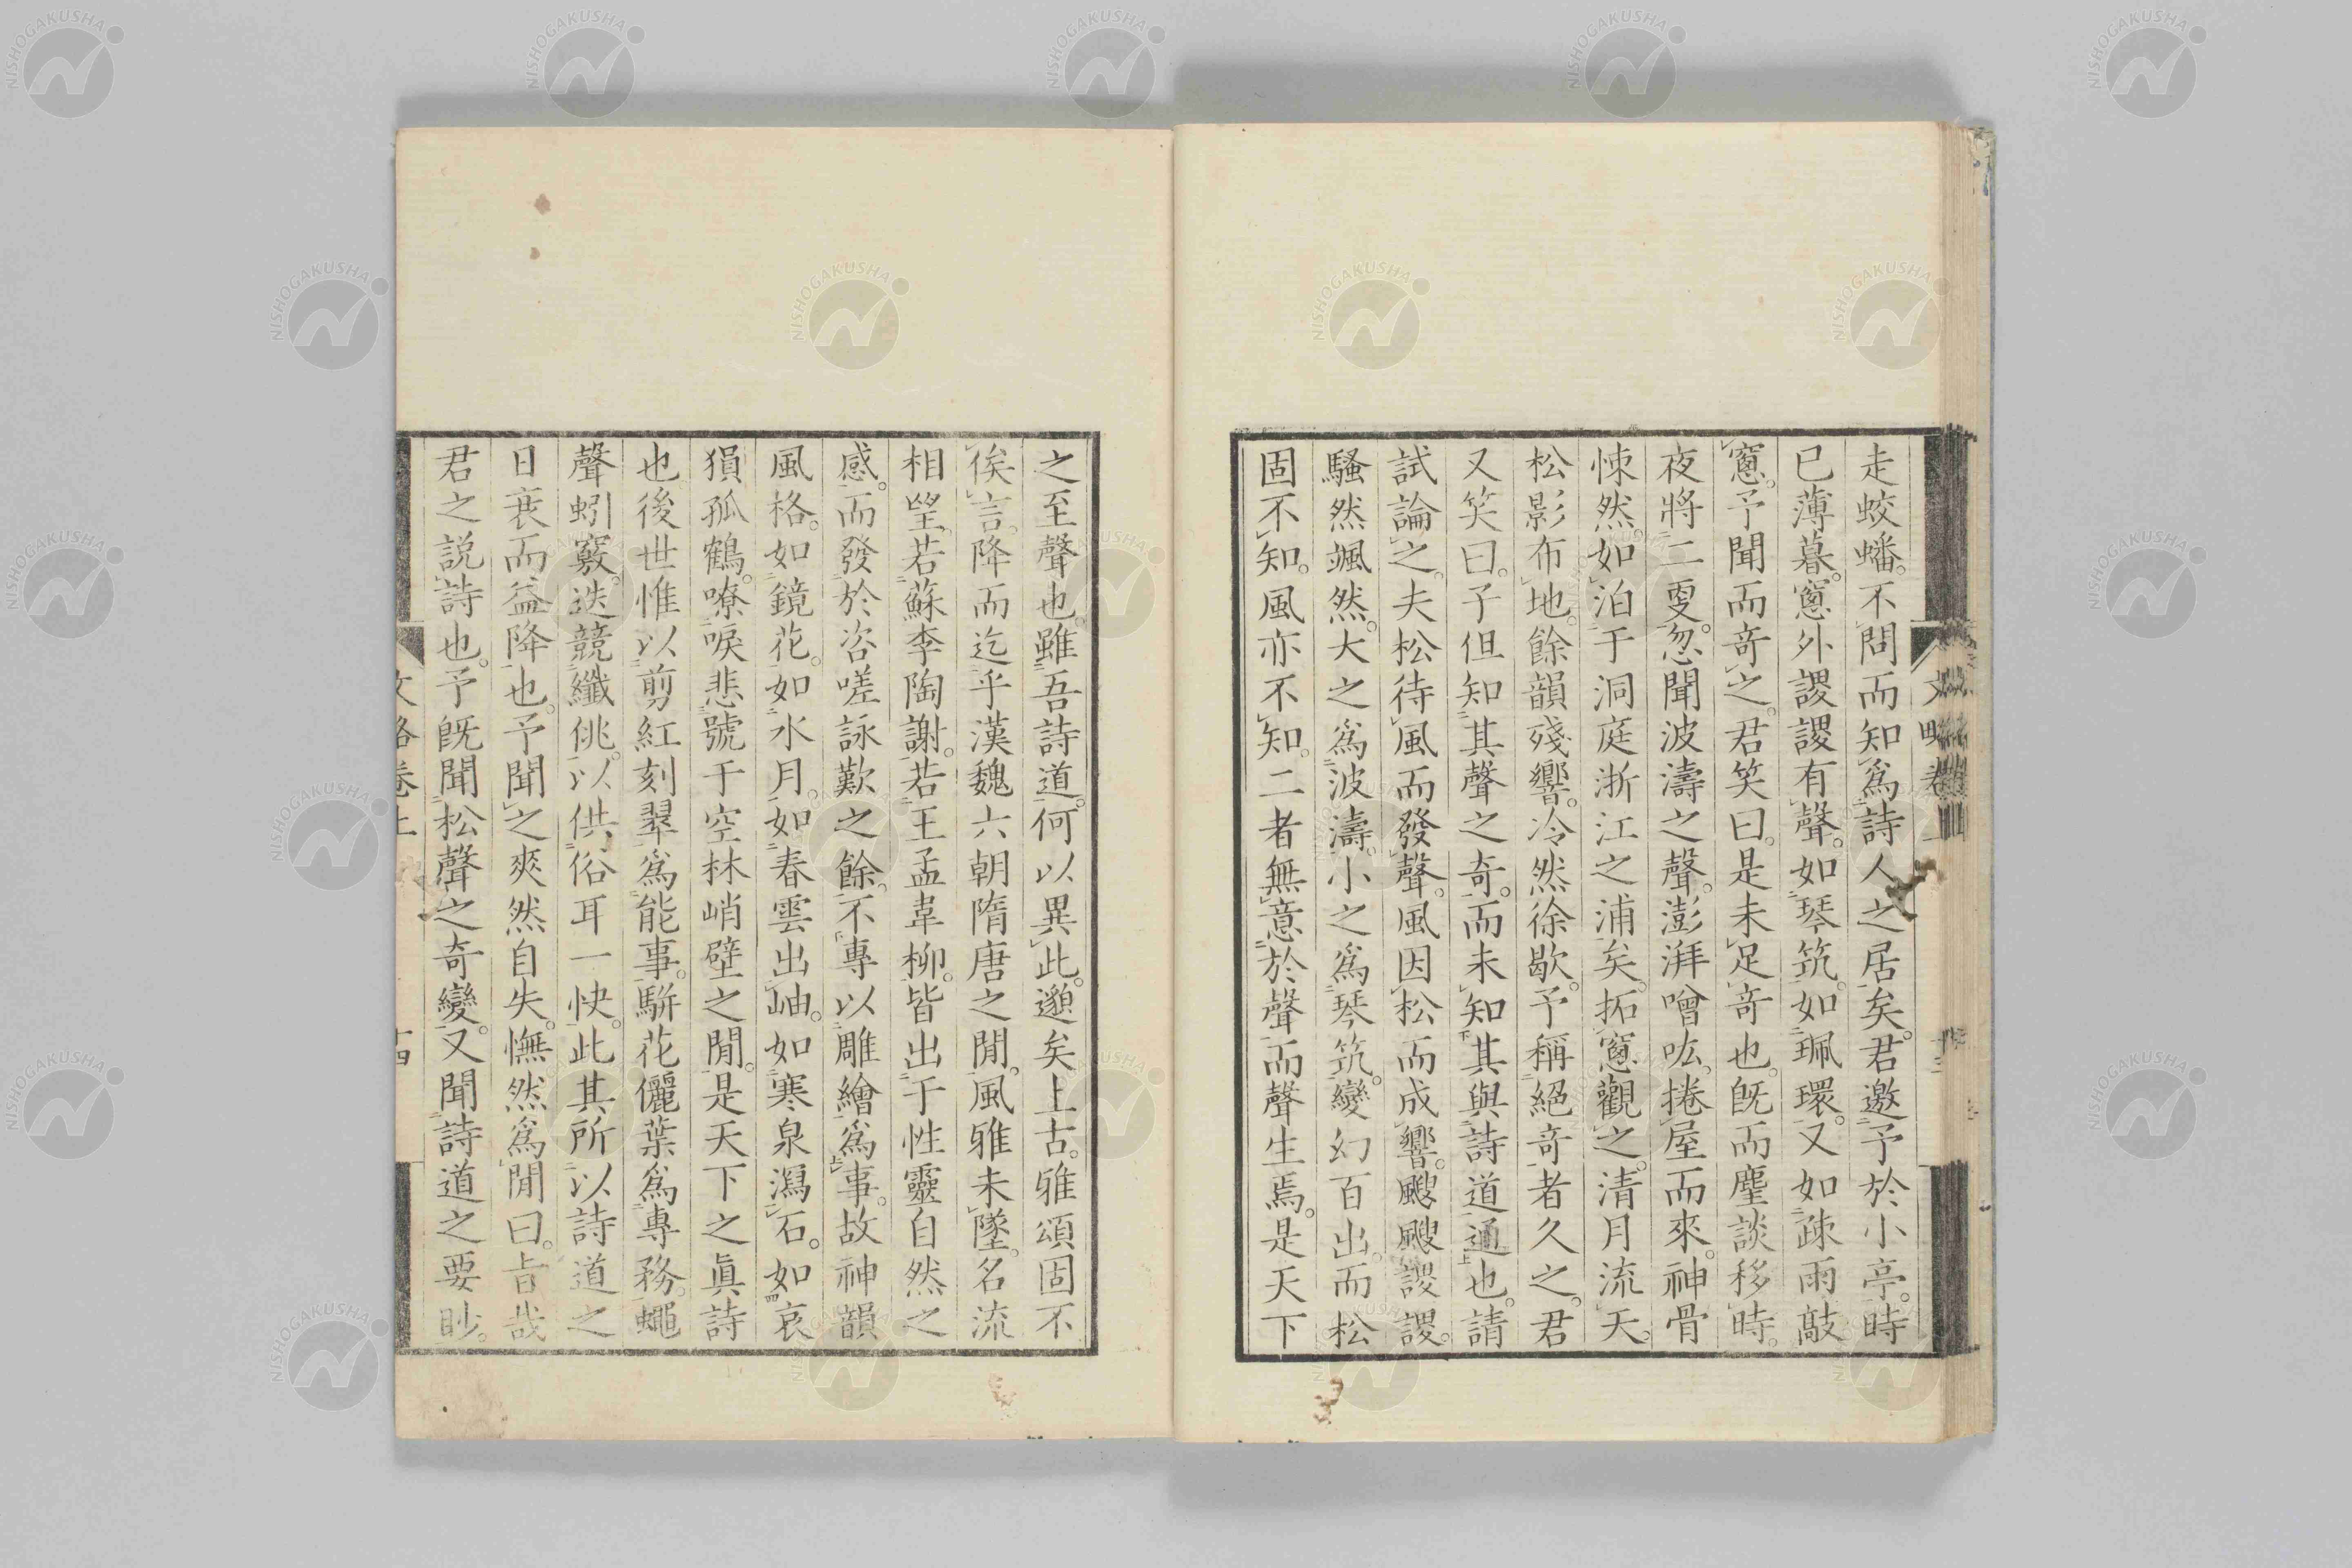 走蛟蟠。不問而知爲詩人之居矣。君邀予於小亭。時
已薄暮。窻外謖謖有聲。如琴筑。如珮環。又如疎雨敲
窻。予聞而奇之。君笑曰。是未足奇也。既而麈談移時。
夜將二更。忽聞波濤之聲。澎湃噌吰。捲屋而來。神骨
悚然。如泊于洞庭浙江之浦矣。拓窻觀之。清月流天。
松影布地。餘韻殘響。冷然徐歇。予稱絕奇者久之。君
又笑曰。子但知其聲之奇。而未知其與詩道通也。請
試論之。夫松待風而發聲。風因松而成響。颼颼謖謖。
騷然颯然。大之爲波濤。小之爲琴筑。變幻百出。而松
固不知。風亦不知。二者無意於聲而聲生焉。是天下
之至聲也。雖吾詩道。何以異此。邈矣上古。雅頌固不
俟言。降而迄乎漢魏六朝隋唐之閒。風雅未墜。名流
相望。若蘇李陶謝。若王孟韋柳。皆出于性靈自然之
感。而發於咨嗟詠歎之餘。不專以雕繪爲事。故神韻
風格。如鏡花。如水月。如春雲出岫。如寒泉瀉石。如哀
猨孤鶴。嘹唳悲號于空林峭壁之閒。是天下之眞詩
也後世惟以剪紅刻翠爲能事。駢花儷葉爲專務。蠅
聲蚓竅。迭競纖佻。以供俗耳一快。此其所以詩道之
日衰而益降也。予聞之爽然自失。憮然爲閒曰。旨哉
君之説詩也。予既聞松聲之奇變。又聞詩道之要眇。
文略卷上
十四
NISHOGAKUSHA